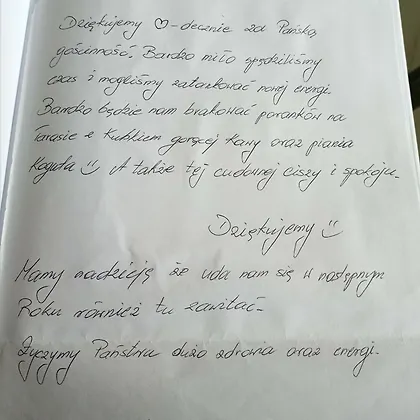 Dziękujemy ♡-decznie za Pańską
gościnność. Bardzo miło spędziliśmy
czas i mogliśmy zatankować nowej energi.
Bardzo będzie nam brakować poranków na
Tarasie z kubkiem gorącej kawy oraz piania
koguta :) A także tej cudownej ciszy i spokoju.
Dziękujemy :)
Mamy nadzieję że uda nam się w następnym
Roku również tu zawitać.
Życzymy Państwu dużo zdrowia oraz energi.